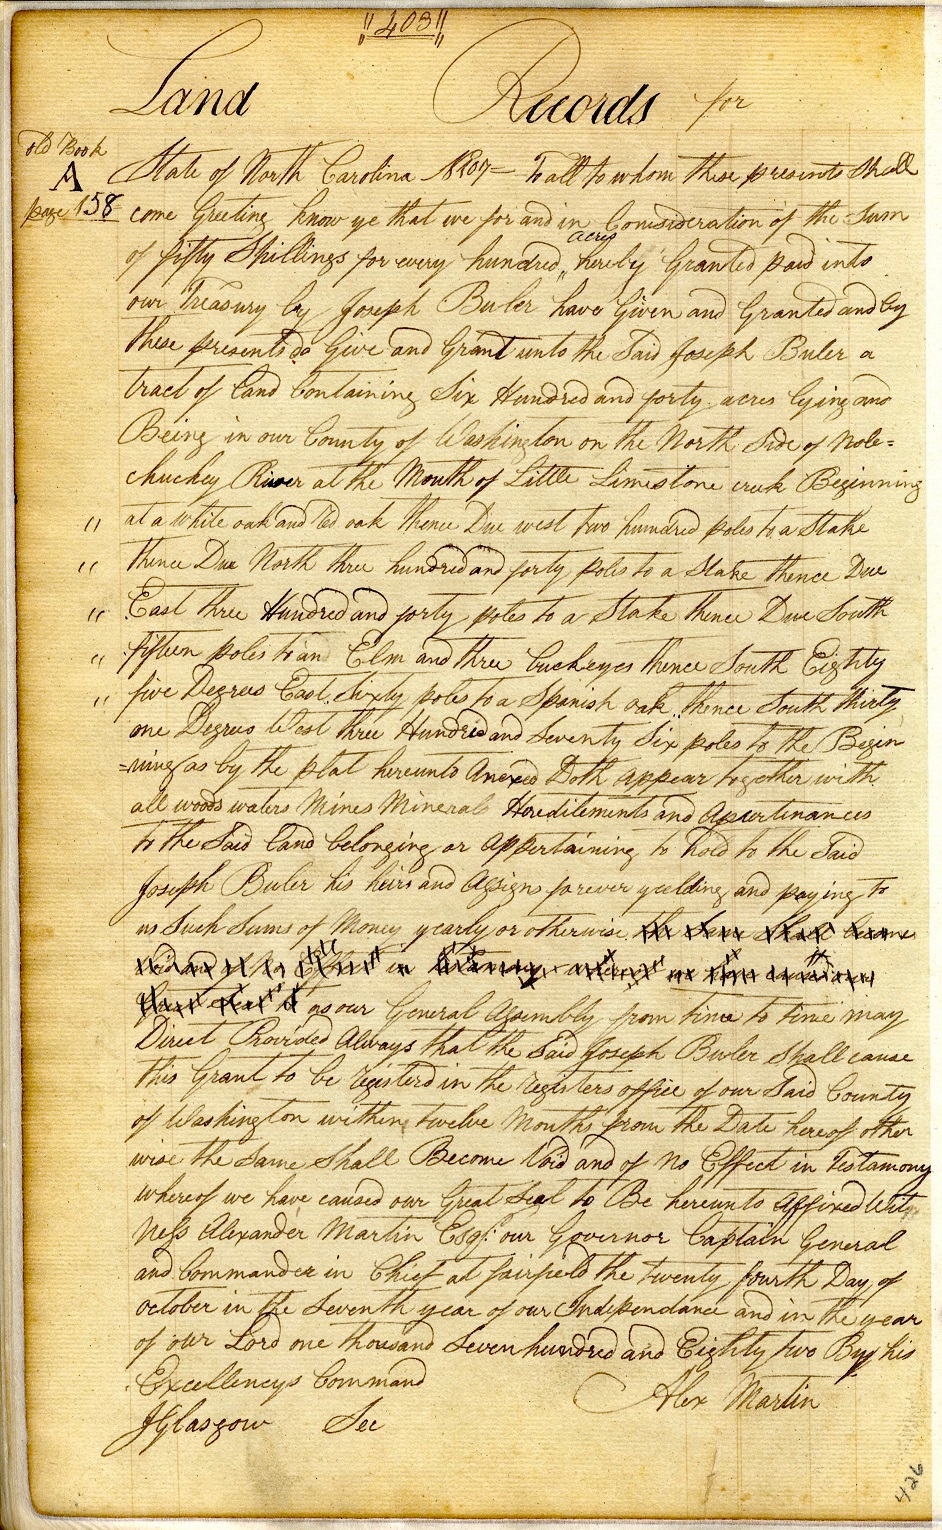 "403"
Land Records for
old Book
A
page 158
State of North Carolina No 207 = To all to whom these presents Shall
come Greeting know ye that we for and in Consisideration of the Sum
acres
of fifty Shillings for every hundred " hereby Granted paid into
our Treasury by Joseph Buler have Given and Granted and by
these presents do Give and Grant unto the Said Joseph Buler a
tract of Land Containing Six Hundred and forty acres lying and
Being in our County of Washington on the North Side of Nole=
chuckey River at the Mouth of Little Limestone creek Beginning
" at a white oak and Red oak thence Due west two humdred poles to a Stake
" thence Due North three hundred and forty poles to a Stake thence Due
" East three Hundred and forty poles to a Stake thence Due South
" fifteen poles to an Elm and three buckeyes thence South Eighty
" five Degrees East Sixty poles to a Spanish oak thence South thirty
one Degrees West three Hundred and Seventy Six poles to the Begin
=ning as by the plat hereunto Anexed Doth appear together with
all woods waters Mines Minerals Hereditements and Apurtinances
to the Said Land belonging or Appertaining to hold to the Said
Joseph Buler his heirs and Assigns forever yielding and paying to
us Such Sums of Money yearly or otherwise the Same Shall become
in
as our General Assembly from time to time may
Direct Provided Always that the Said Joseph Buler Shall cause
this Grant to be registerd in the registers office of our Said County
of Washington within twelve Months from the Date hereof other
wise the Same Shall Become Void and of No Effect in Testamony
whereof we have caused our Great Seal to Be hereunto Affixed Wit
Ness Alexander Martin Esqr. our Governor Captain General
and Commander in Chief at fairfield the twenty fourth Day of
October in the Seventh year of our Independance and in the year
of our Lord one thousand Seven hundred and Eighty two By his
Excellencys Command
Alex Martin
J Glasgow Sec
426